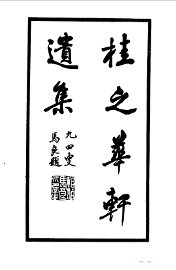 桂之華軒
遺集
九四叟
馬良題